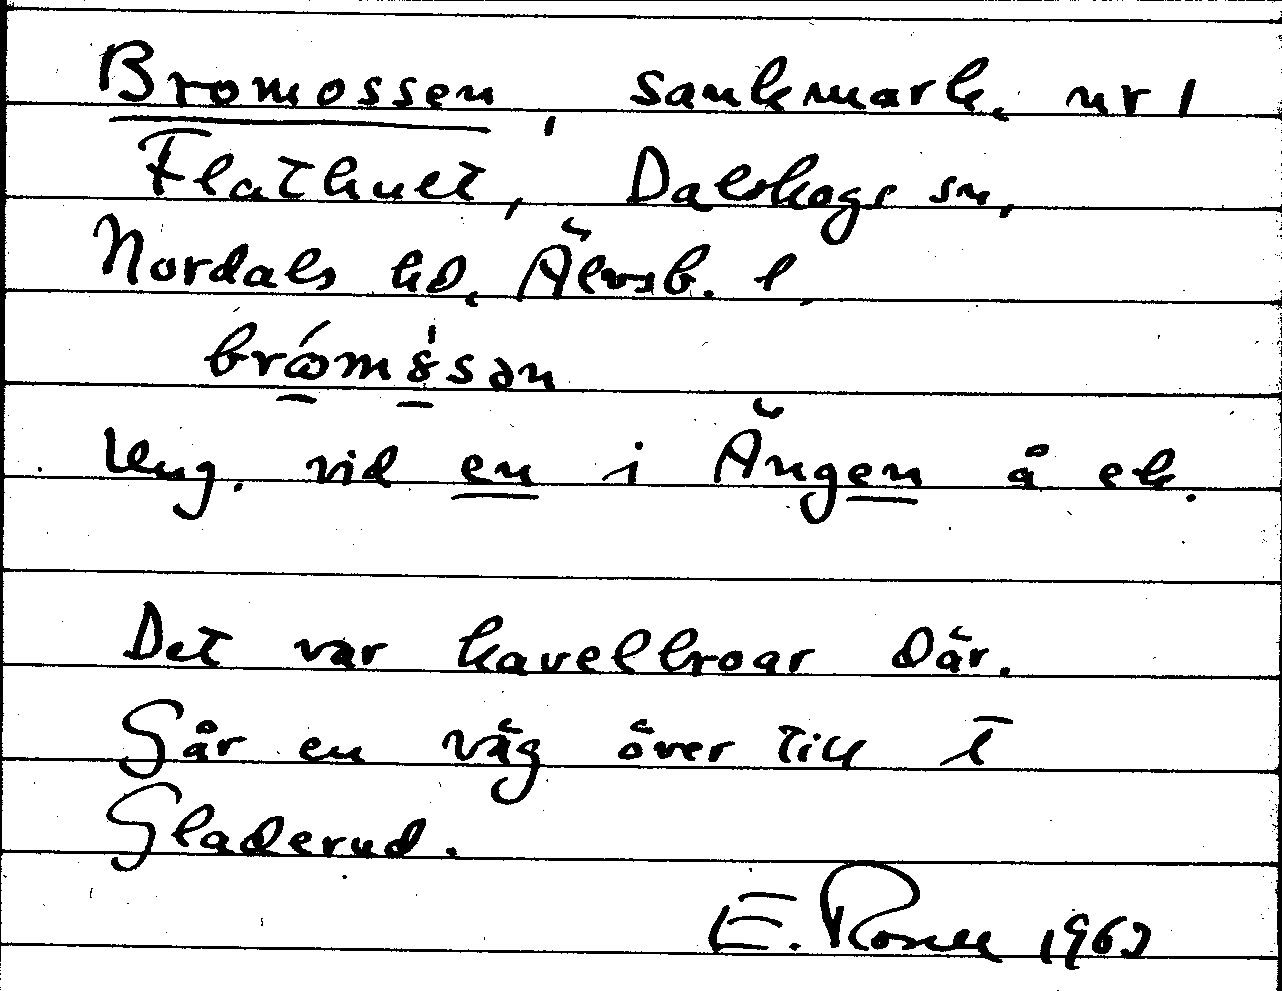 Bromossen, sankmark, nr 1
Flathult, Dalskogs sn,
Nordals hd, Älvsb. l
Ung. vid en i Ängen å ek.
Det var kavelbroar där.
Går en väg över till
Gladerud.
E. Rosell